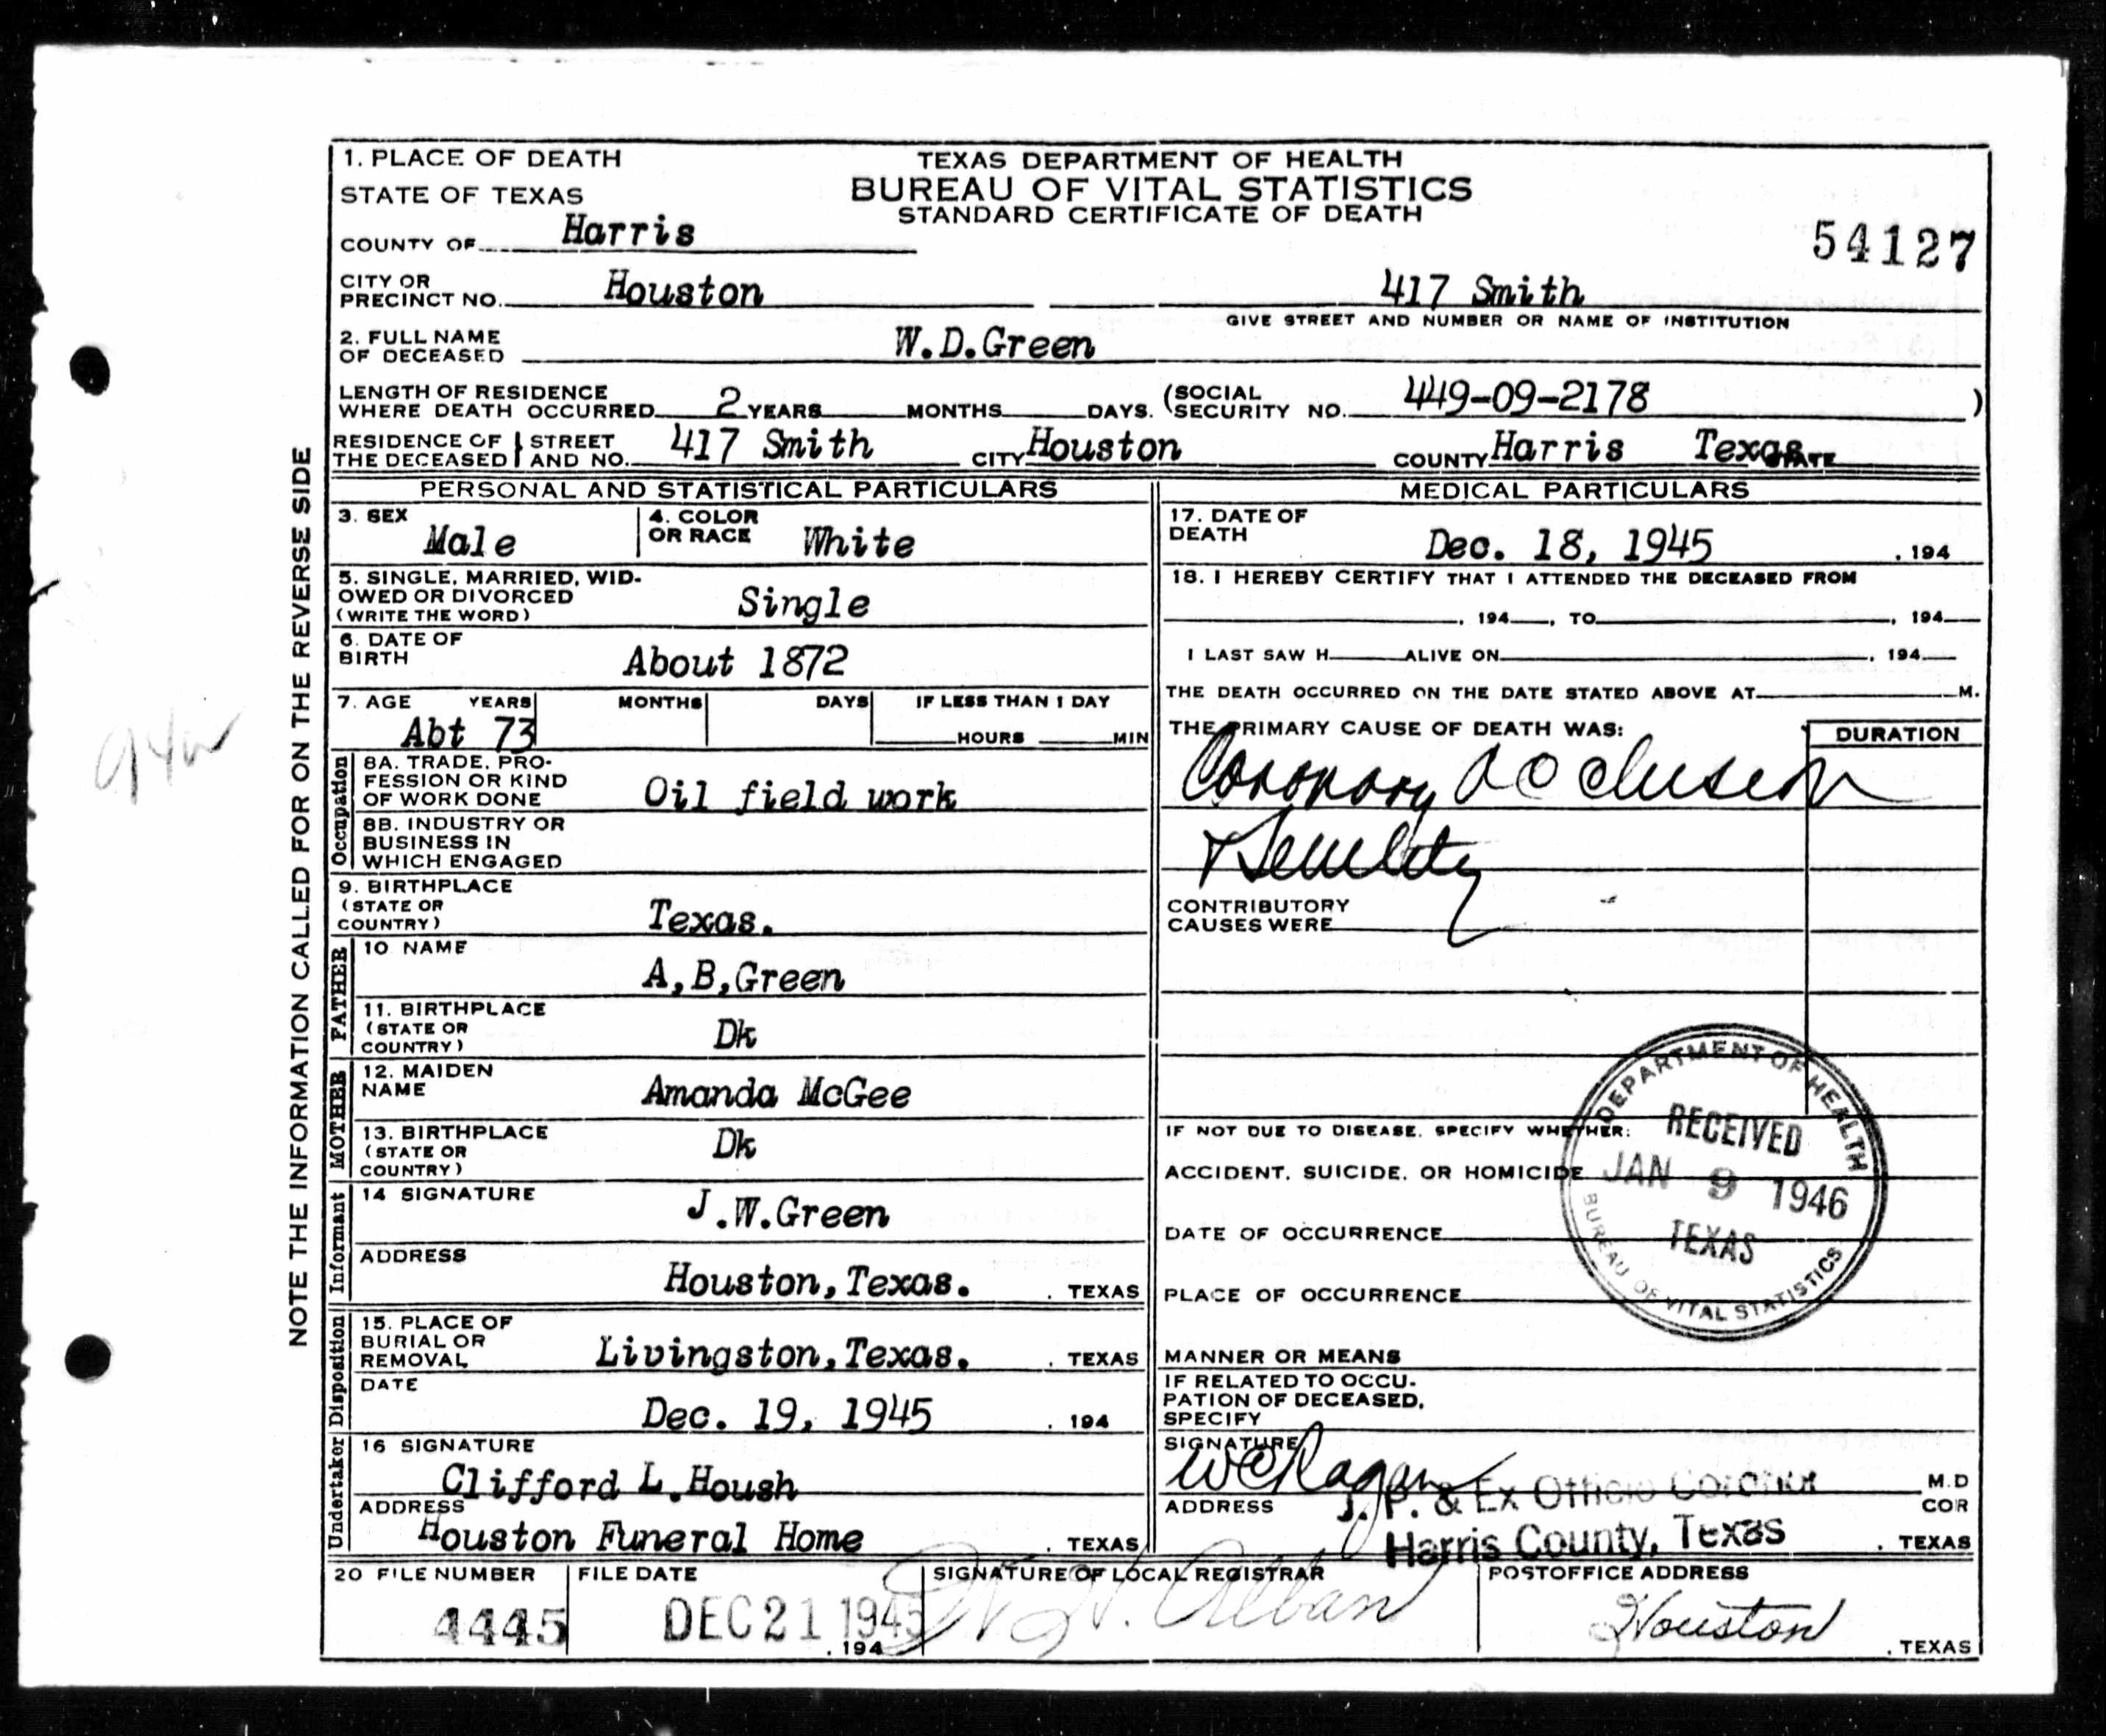 1. PLACE OF DEATH
STATE OF TEXAS
COUNTY OF Harris
TEXAS DEPARTMENT OF HEALTH
BUREAU OF VITAL STATISTICS
STANDARD CERTIFICATE OF DEATH
54127
CITY OR
PRECINCT NO. Houston
417 Smith
GIVE STREET AND NUMBER OR NAME OF INSTITUTION
2. FULL NAME
OF DECEASED W.D.Green
LENGTH OF RESIDENCE
WHERE DEATH OCCURRED 2 YEARS MONTHS DAYS. (SOCIAL
SECURITY NO. 449-09-2178 )
RESIDENCE OF THE DECEASED STREET AND NO. 417 Smith CITY Houston COUNTY Harris Texas STATE
NOTE THE INFORMATION CALLED FOR ON THE REVERSE SIDE
PERSONAL AND STATISTICAL PARTICULARS
3. SEX
Male
4. COLOR
OR RACE White
5. SINGLE, MARRIED, WID-
OWED OR DIVORCED
(WRITE THE WORD) Single
6. DATE OF
BIRTH About 1872
7. AGE YEARS MONTHS DAYS IF LESS THAN 1 DAY
Abt 73 HOURS MIN
Occupation
8A. TRADE, PRO-
FESSION OR KIND
OF WORK DONE Oil field work
8B. INDUSTRY OR
BUSINESS IN
WHICH ENGAGED
9. BIRTHPLACE
(STATE OR
COUNTRY) Texas.
FATHER
10 NAME
A,B,Green
11. BIRTHPLACE
(STATE OR
COUNTRY) Dk
MOTHER
12. MAIDEN
NAME Amanda McGee
13. BIRTHPLACE
(STATE OR
COUNTRY) Dk
Informant
14 SIGNATURE
J.W.Green
ADDRESS
Houston, Texas. . TEXAS
Disposition
15. PLACE OF
BURIAL OR
REMOVAL Livingston, Texas. . TEXAS
DATE
Dec. 19, 1945 . 194
Undertaker
16 SIGNATURE
Clifford L.Housh
ADDRESS
Houston Funeral Home . TEXAS
MEDICAL PARTICULARS
17. DATE OF
DEATH Dec. 18, 1945 . 194
18. I HEREBY CERTIFY THAT I ATTENDED THE DECEASED FROM
, 194 , TO , 194
I LAST SAW H ALIVE ON , 194
THE DEATH OCCURRED ON THE DATE STATED ABOVE AT M.
THE PRIMARY CAUSE OF DEATH WAS:
DURATION
Coronary occlusion
+ Senility
CONTRIBUTORY
CAUSES WERE
IF NOT DUE TO DISEASE, SPECIFY WHETHER:
ACCIDENT, SUICIDE, OR HOMICIDE
DATE OF OCCURRENCE
PLACE OF OCCURRENCE
DEPARTMENT OF HEALTH
RECEIVED
JAN 9 1946
TEXAS
BUREAU OF VITAL STATISTICS
MANNER OR MEANS
IF RELATED TO OCCU-
PATION OF DECEASED,
SPECIFY
SIGNATURE
W C Ragan M.D
J. P. & Ex Officio Coroner
ADDRESS COR
Harris County, Texas . TEXAS
20 FILE NUMBER
4445
FILE DATE
DEC 21 1945
. 194
SIGNATURE OF LOCAL REGISTRAR
W. H. Alban
POSTOFFICE ADDRESS
Houston
. TEXAS